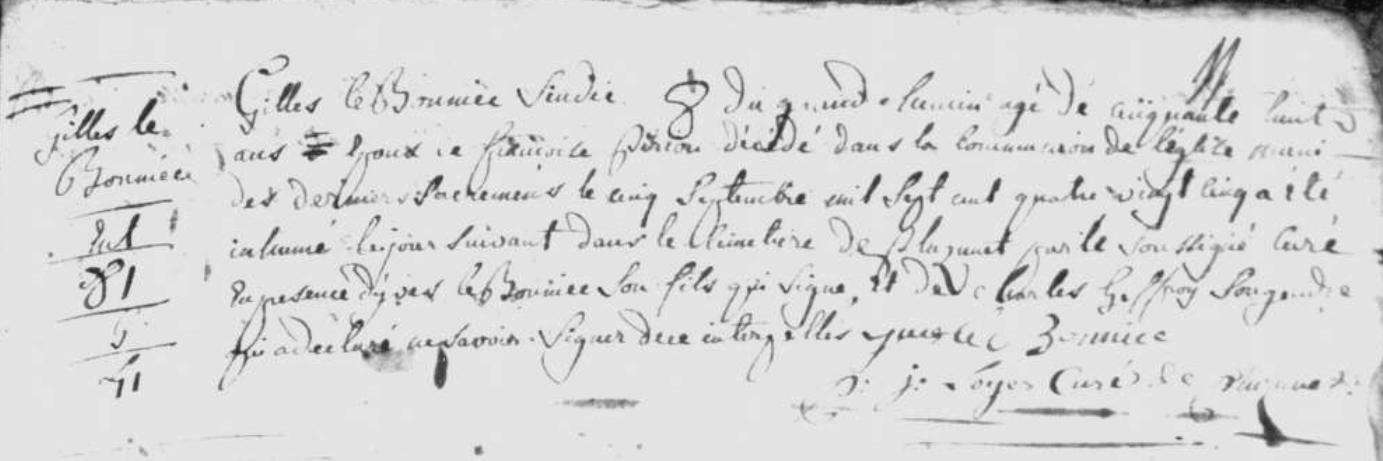 Gilles le
Bonniéc
Ent
81
Gilles le Bonniec du grand chemin agé de cinquante huit
ans Epoux de françoise décédé dans la communion de l'église muni
des derniers Sacremens le cinq Septembre mil Sept cent quatre vingt cinq a été
inhumé le jour Suivant dans le Cimetiere de Pluzunet par le Soussigné Curé
En presence d'yves le Bonniec Son fils qui Signe, Et de Charles Geffroy Son gendre
qui a déclaré ne Savoir Signer de ce interpelles yves le Bonniec
j: Loyer Curé de